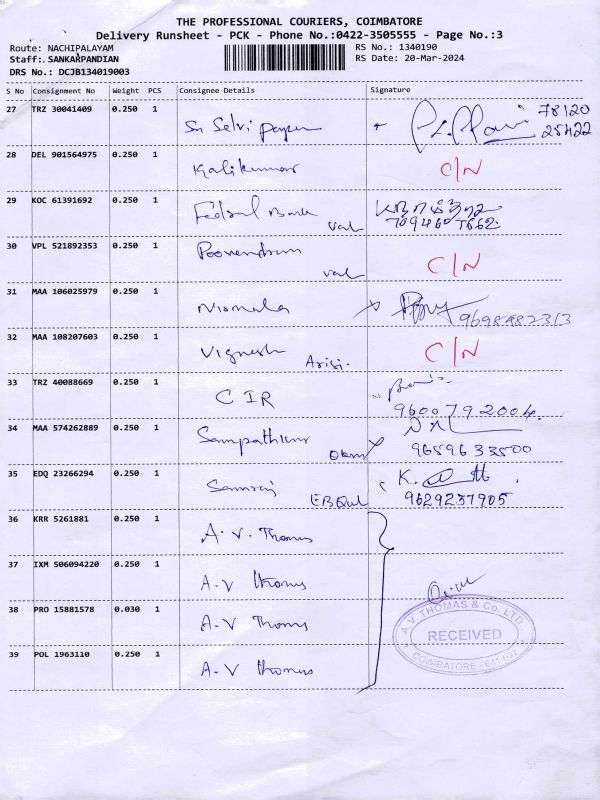 THE PROFESSIONAL COURIERS, COIMBATORE
Delivery Runsheet - PCK - Phone No.:0422-3505555 - Page No.:3
Route: NACHIPALAYAM
RS No.: 1340190
Staff: SANKARPANDIAN
RS Date: 20-Mar-2024
DRS No.: DCJB134019003
S No Consignment No Weight PCS Consignee Details Signature
27 TRZ 30041409 0.250 1 Sri Selvi 78120
25422
28 DEL 901564975 0.250 1 Kalikumar C/N
29 KOC 61391692 0.250 1 Fedral Bank val
30 VPL 521892353 0.250 1 Poovendran val C/N
31 MAA 106025979 0.250 1 Nirmala
32 MAA 108207603 0.250 1 Vignesh Arisi. C/N
33 TRZ 40088669 0.250 1 CIR
9600792004.
34 MAA 574262889 0.250 1 Sampathkumr
9659633500
35 EDQ 23266294 0.250 1 K.
9629237905
36 KRR 5261881 0.250 1 A. V. Thomus
37 IXM 506094220 0.250 1 A.V Thomus
38 PRO 15881578 0.030 1 A.V Thomus
39 POL 1963110 0.250 1 A.V Thomus
A.V. THOMAS & Co. LTD.
RECEIVED
COIMBATORE - 641 032